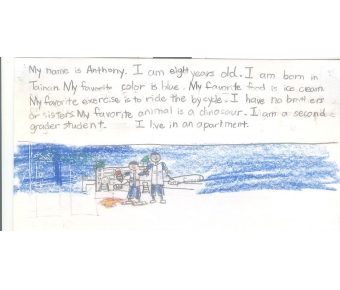 My name is Anthony. I am eight years old. I am born in
Tainan. My favorite color is blue. My favorite food is ice cream.
My favorite exercise is to ride the bycycle. I have no brothers
or sisters. My favorite animal is a dinosaur. I am a second
grader student. I live in an apartment.